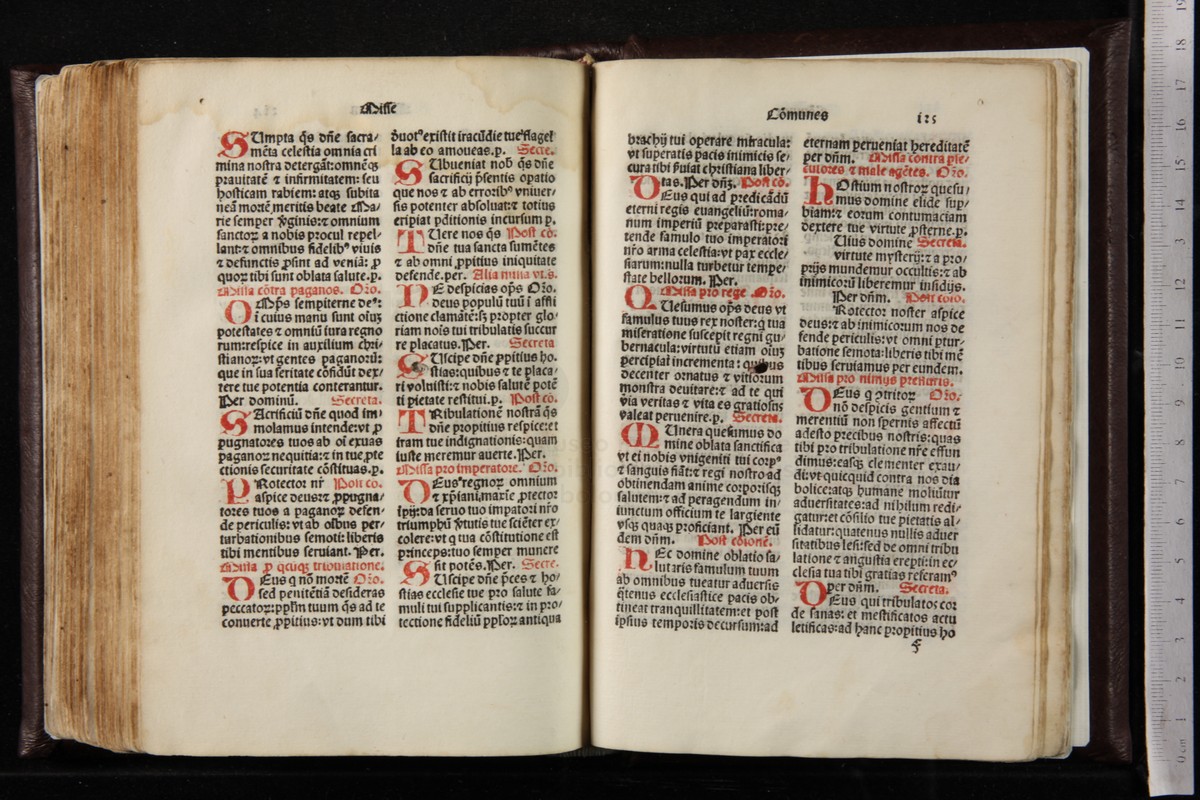 Misse
SUmpta q̄s dn̄e sacra/
mēta celestia omnia cri
mina nostra detergāt:omnēqȝ
prauitatē ⁊ infirmitatem: seu
hosticam rabiem:atqȝ subita
neā mortē meritis beate Ma/
rie semper v̓ginis:⁊ omnium
sanctoꝝ a nobis procul repel/
lant:⁊ omnibus fidelibꝰ viuis
⁊ defunctis ꝓsint ad veniā: ꝓ
quoꝝ tibi sunt oblata salute.ꝑ.
Missa cōtra paganos. Oꝛo.
OMp̄s sempiterne deꝰ:
ī cuius manu sunt oīuȝ
potestates ⁊ omniū iura regno
rum:respice in auxilium chri/
stianoꝝ:vt gentes paganoꝝū:
que in sua feritate cōfidūt dex/
tere tue potentia conterantur.
Per dominū. Secreta.
SAcrificiū dn̄e quod im/
molamus intende:vt ꝓ
pugnatores tuos ab oī exuas
paganoꝝ nequitia:⁊ in tue ꝓte
ctionis securitate cōstituas.ꝑ.
PRotector nr̄ Post cō.
aspice deus:⁊ ꝓpugna/
tores tuos a paganoꝝ defen/
de periculis: vt ab oībus per/
turbationibus semoti: liberis
tibi mentibus seruiant. Per.
Missa ꝓ qcūqȝ tribulatione.
DEus q nō mortē Oꝛo.
sed penitētiā desideras
peccatoꝝ:pplm̄ tuum q̄s ad te
conuerte ꝓpitius: vt dum tibi
duotꝰ existit iracūdie tue flagel
la ab eo amoueas.p. Secre.
SUbueniat nob̄ q̄s dn̄e
sacrificij p̄sentis opatio
que nos ⁊ ab erroribꝰ vniuer/
sis potenter absoluat:⁊ totius
eripiat ꝑditionis incursum p.
TUere nos q̄s Post cō.
dn̄e tua sancta sumētes
⁊ ab omni ꝓpitius iniquitate
defende.per. Alia missa vt.s.
NE despicias op̄s Oꝛo.
deus populū tuū ī affli
ctione clamātē:sȝ propter glo/
riam nois tui tribulatis succur
re placatus.Per. Secreta
SUscipe dn̄e ꝓpitius ho.
stias:quibus ⁊ te placa/
ri voluisti:⁊ nobis salutē potē
ti pietate restitui.p. Post cō.
TRibulationē nostrā q̄s
dn̄e propitius respice:et
iram tue indignationis:quam
iuste meremur auerte.Per.
Missa pro imperatore. Oꝛo.
DEus regnoꝝ omnium
⁊ xp̄iani,maxīe ꝓtector
īpij:da seruo tuo impatori nr̄o
triumphū v̓tutis tue sciēter ex/
colere:vt q tua cōstitutione est
princeps:tuo semper munere
sit potēs.Per. Secre.
SUscipe dn̄e p̄ces ⁊ ho/
stias ecclesie tue pro salute fa/
muli tui supplicantis:⁊ in pro/
tectione fideliū ppl'oꝝ antiqua
Cōmunes 125
brachij tui operare miracula:
vt superatis pacis inimicis se/
cura tibi ẜuiat christiana liber/
tas.Per dn̄ȝ. Post cō.
DEus qui ad predicādū
eterni regis euangeliū:roma/
num imperiū preparasti:pre/
tende famulo tuo imperatori
nr̄o arma celestia:vt pax eccle/
siarum:nulla turbetur tempe/
state bellorum. Per.
Missa pro rege. Oꝛo.
QUesumus op̄s deus vt
famulus tuus rex noster:q̓ tua
miseratione suscepit regni gu/
bernacula:virtutū etiam oīuȝ
percipiat incrementa: quibus
decenter ornatus ⁊ vitiorum
monstra deuitare:⁊ ad te qui
via veritas ⁊ vita es gratiosus
valeat peruenire.p. Secreta.
MUnera quesumus do
mine oblata sanctifica
vt ei nobis vnigeniti tui corpꝰ
⁊ sanguis fiāt:⁊ regi nostro ad
obtinendam anime corporisqȝ
salutem:⁊ ad peragendum in/
iunctum officium te largiente
vsqȝ quaqȝ proficiant. Per eū
dem dn̄m. Post cōionē.
HEc domine oblatio sa/
lutaris famulum tuum
ab omnibus tueatur aduersis
q̄tenus ecclesiastice pacis ob/
tineat tranquillitatem:et post
ipsius temporis decursum:ad
eternam perueniat hereditatē
per dn̄m. Missa contra ꝑse/
cutores ⁊ male agētes. Oꝛo.
HOstium nostroꝝ quesu/
mus domine elide sup/
biam:⁊ eorum contumaciam
dextere tue virtute ꝓsterne.p.
Uius domine Secreta.
virtute mysterij:⁊ a pro/
prijs mundemur occultis:⁊ ab
inimicoꝝū liberemur insidijs.
Per dn̄m. Post cōio.
Rotector noster aspice
deus:⁊ ab inimicorum nos de
fende periculis:vt omni ꝑtur/
batione semota:liberis tibi mē
tibus seruiamus per eundem.
Missa pro nimijs pressuris.
DEus q ꝯtritoꝝ Oꝛo.
nō despicis gentium ⁊
merentiū non spernis affectū
adesto precibus nostris:quas
tibi pro tribulatione nr̄e effun
dimus:easqȝ clementer exau/
di:vt quicquid contra nos dia
bolice:atqȝ humane moliūtur
aduersitates:ad nihilum redi/
gatur:et cōsilio tue pietatis al/
lidatur:quatenus nullis aduer
sitatibus lesi:sed de omni tribu
latione ⁊ angustia erepti:in ec/
clesia tua tibi gratias referamꝰ
per dn̄m. Secreta.
DEus qui tribulatos cor
de sanas: et mestificatos actu
letificas:ad hanc propitius ho